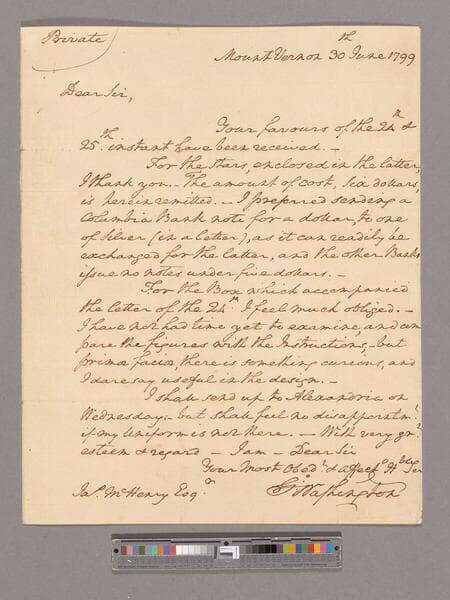 Private
Mount Vernon 30th June 1799
Dear Sir,
Your favours of the 24th &
25th instant have been received. –
For the Stars, enclosed in the latter,
I thank you. – The amount of cost, Six dollars,
is herein remitted. – I preferred sending a
Columbia Bank note for a dollar, to one
of Silver (in a letter), as it can readily be
exchanged for the latter, and the other Banks
issue no notes under five dollars. –
For the Box which accompanied
the letter of the 24th I feel much obliged. –
I have not had time yet to examine, and com
pare the figures with the Instructions, – but
prima facia, there is something curious, and
I dare say useful in the design. –
I shall send up to Alexandria on
Wednesday; – but shall feel no disappointmt
if my Uniform is not there. – With very grt
esteem & regard – I am – Dear Sir
Your most Obedt & affecte Hble Ser
Go: Washington
Jas. McHenry Esqr